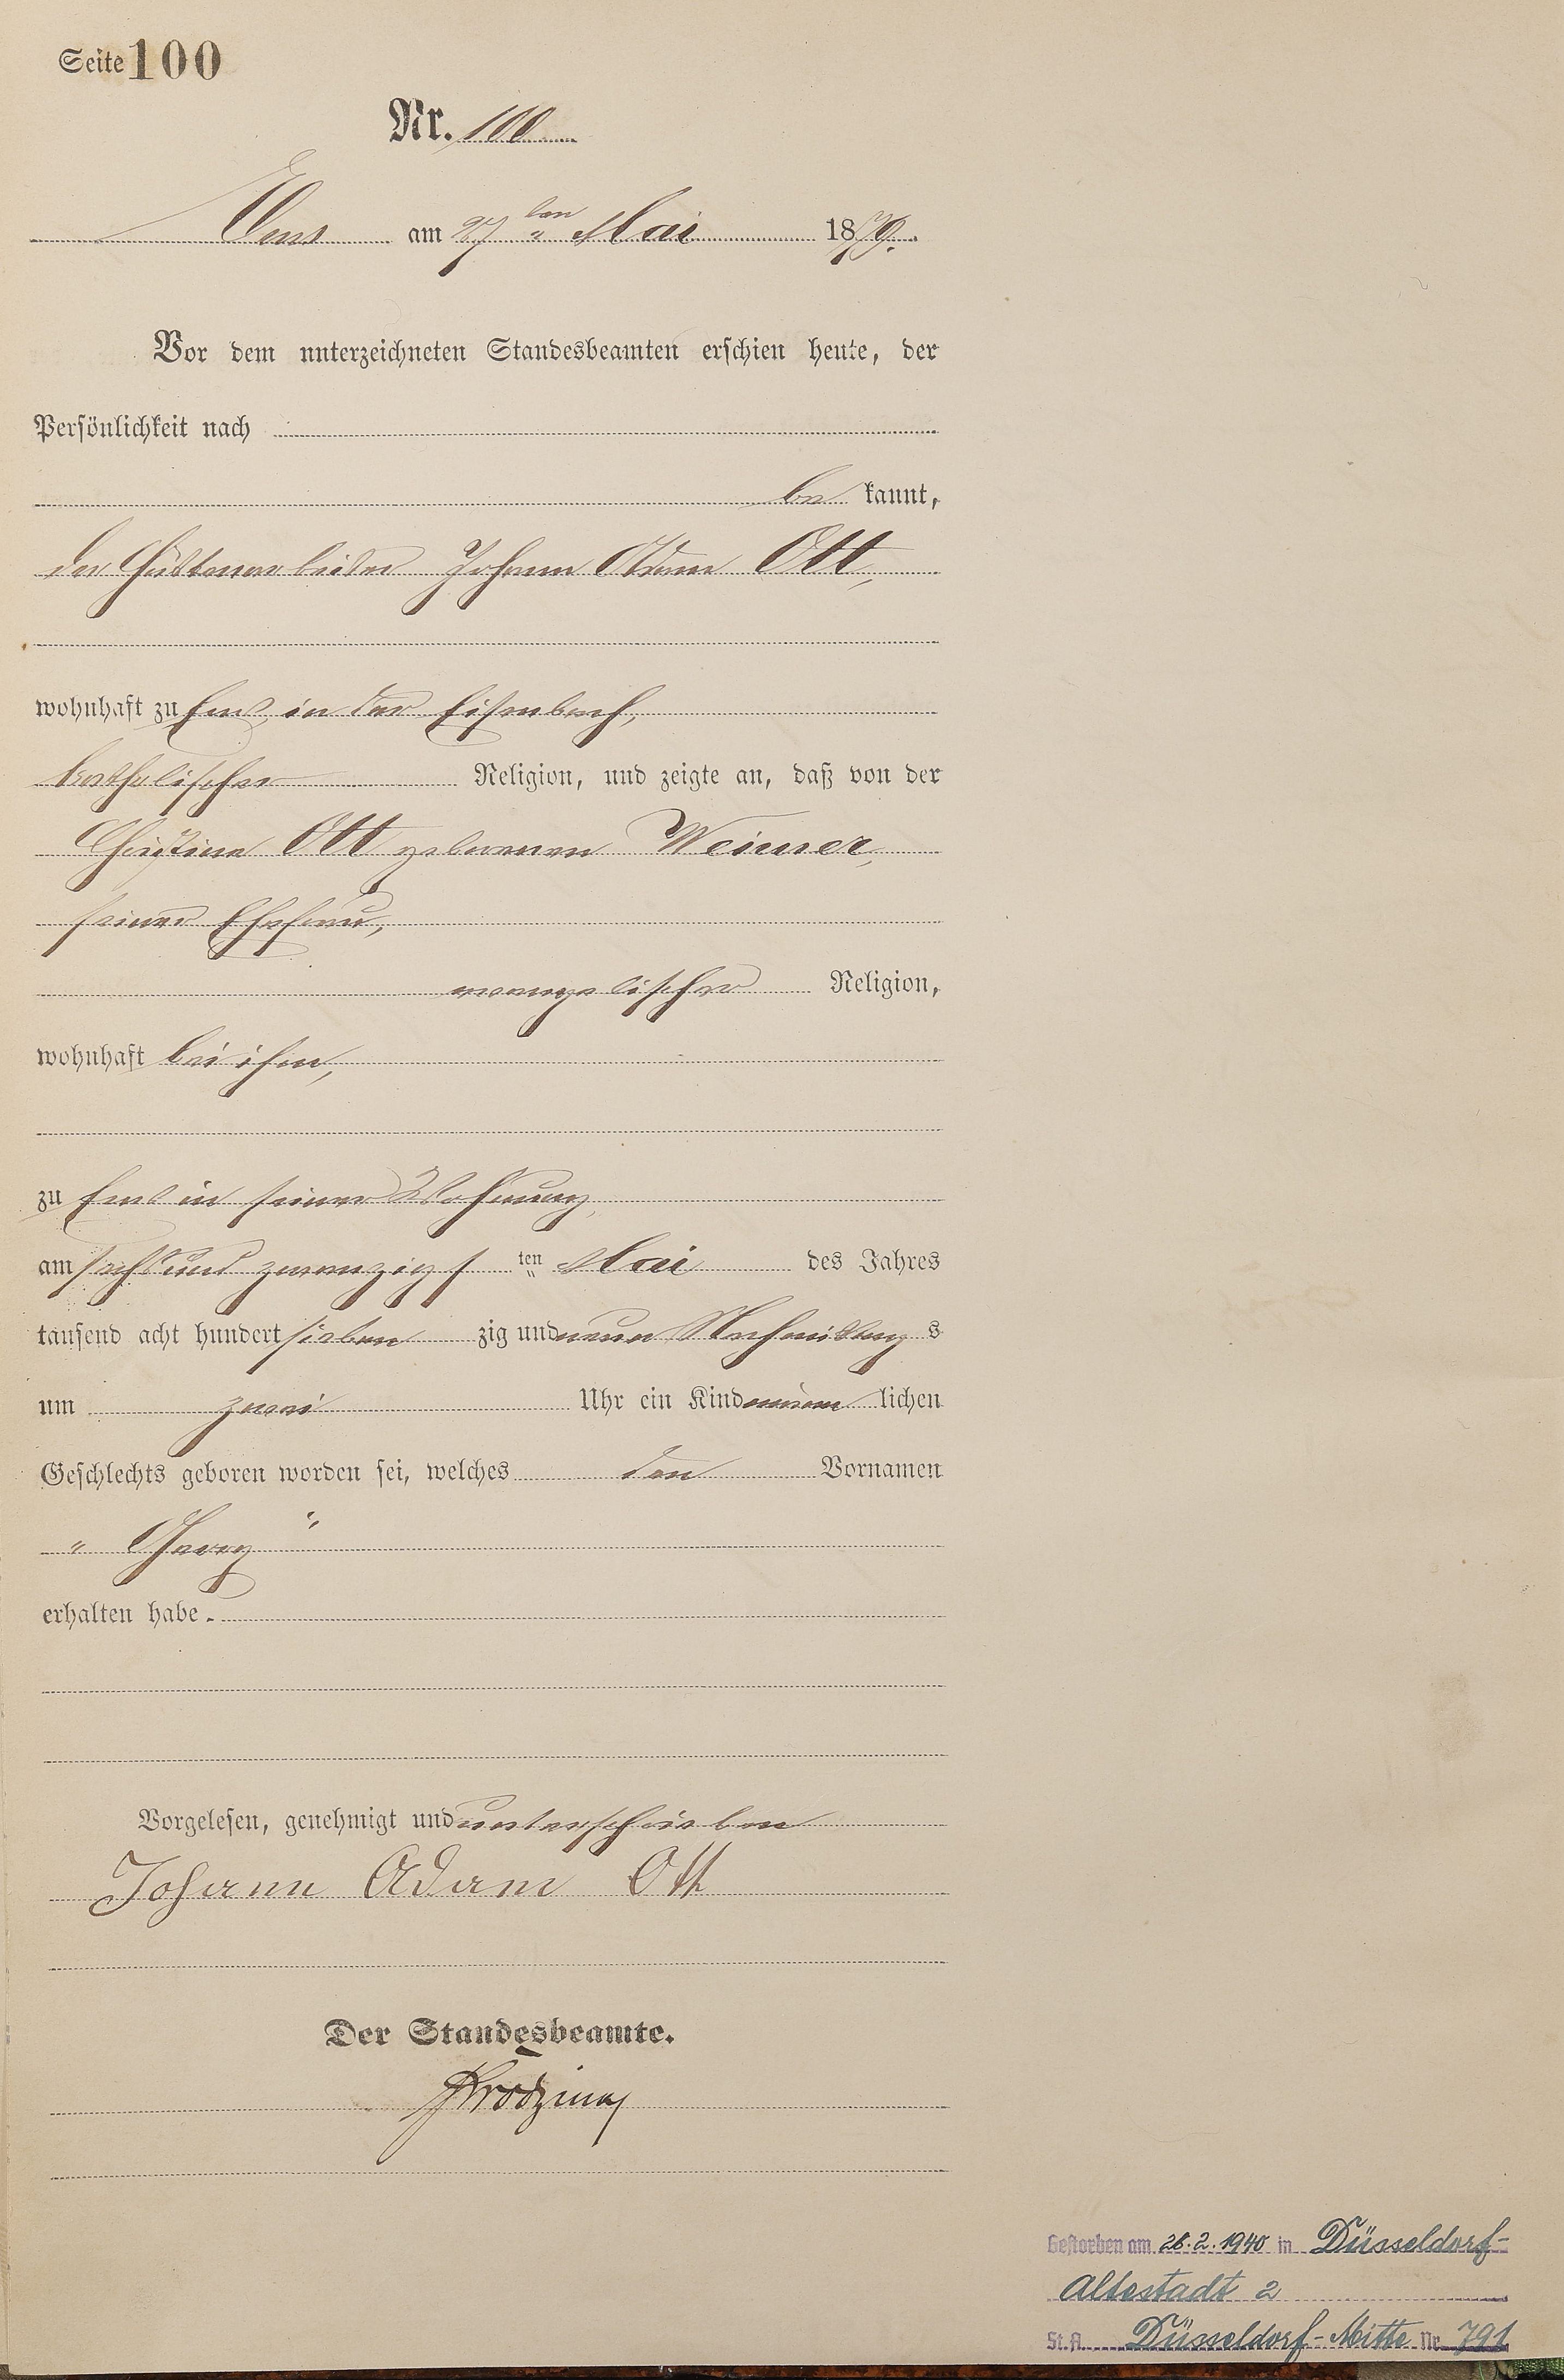 Seite 100
Nr. 100
Ems am 27ten Mai 1879.
Vor dem unterzeichneten Standesbeamten erschien heute, der
Persönlichkeit nach
be kannt,
der Hüttenarbeiter Johann Adam Ott,
wohnhaft zu Ems, in der Eisenbach,
katholischer Religion, und zeigte an, daß von der
Christine Ott geborenen Weimer,
seiner Ehefrau,
evangelischer Religion,
wohnhaft bei ihm,
zu Ems in seiner Wohnung,
am sechsundzwanzigs ten Mai des Jahres
tausend acht hundert sieben zig und neun Nachmittag s
um zwei Uhr ein Kind männ lichen
Geschlechts geboren worden sei, welches den Vornamen
„Georg“
erhalten habe.
Vorgelesen, genehmigt und unterschrieben
Johann Adam Ott
Der Standesbeamte.
Gestorben am 26.2.1940 in Düsseldorf-
Altestadt 2
St.A. Düsseldorf-Mitte Nr. 791